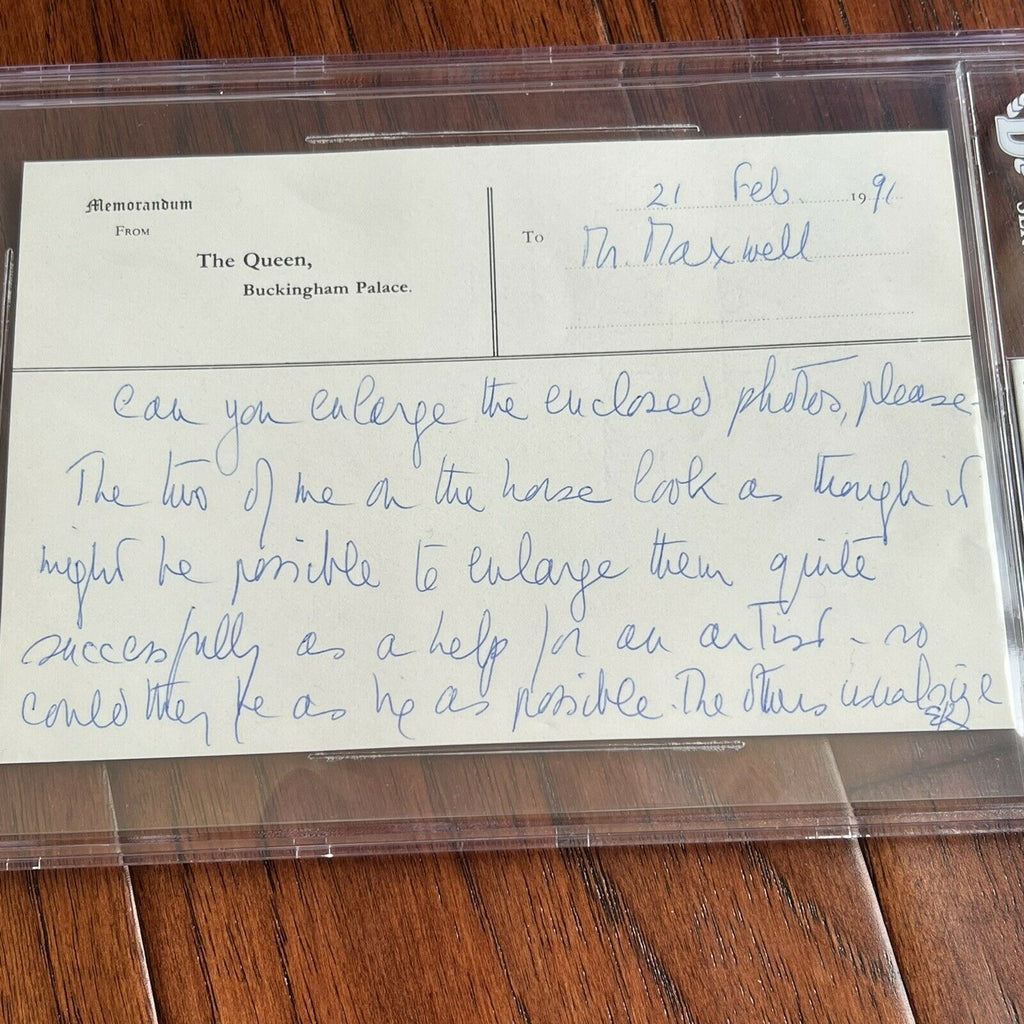 Memorandum
From
The Queen,
Buckingham Palace.
21 Feb. 1991
To Mr. Maxwell
Can you enlarge the enclosed photos, please.
The two of me on the horse look as though it
might be possible to enlarge them quite
successfully as a help for an artist - so
could they be as big as possible. The others usual size
ER